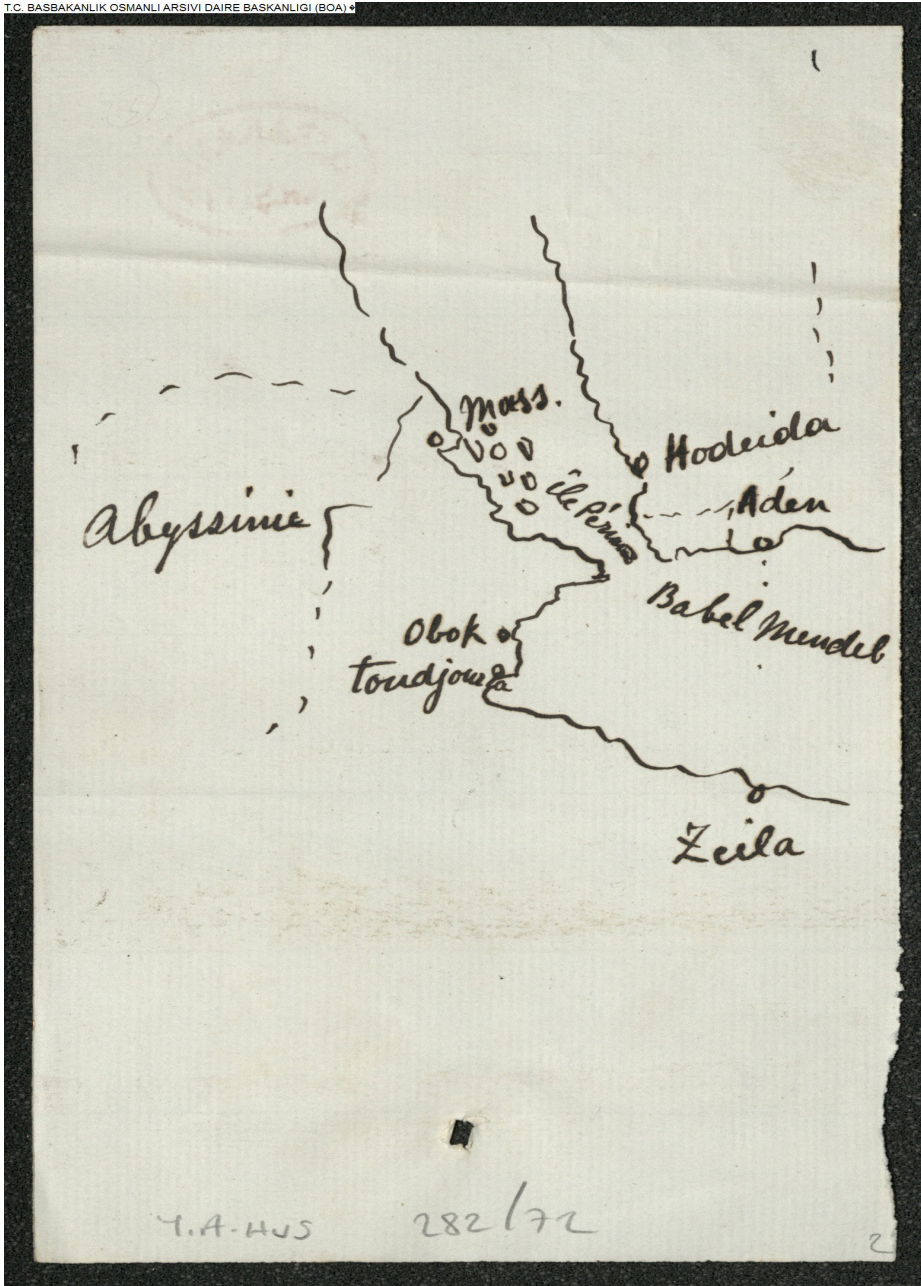 T.C. BASBAKANLIK OSMANLI ARSIVI DAIRE BASKANLIGI (BOA)
Mass.
Hodeida
Aden
île Périm
Abyssinie
Babel Mendeb
Obok
Toudjourra
Zeila
Y.A-HUS 282/72
2